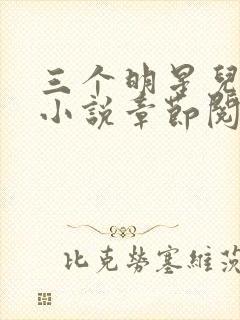 三个明星兒
小説章節閱
比克勞塞維茨